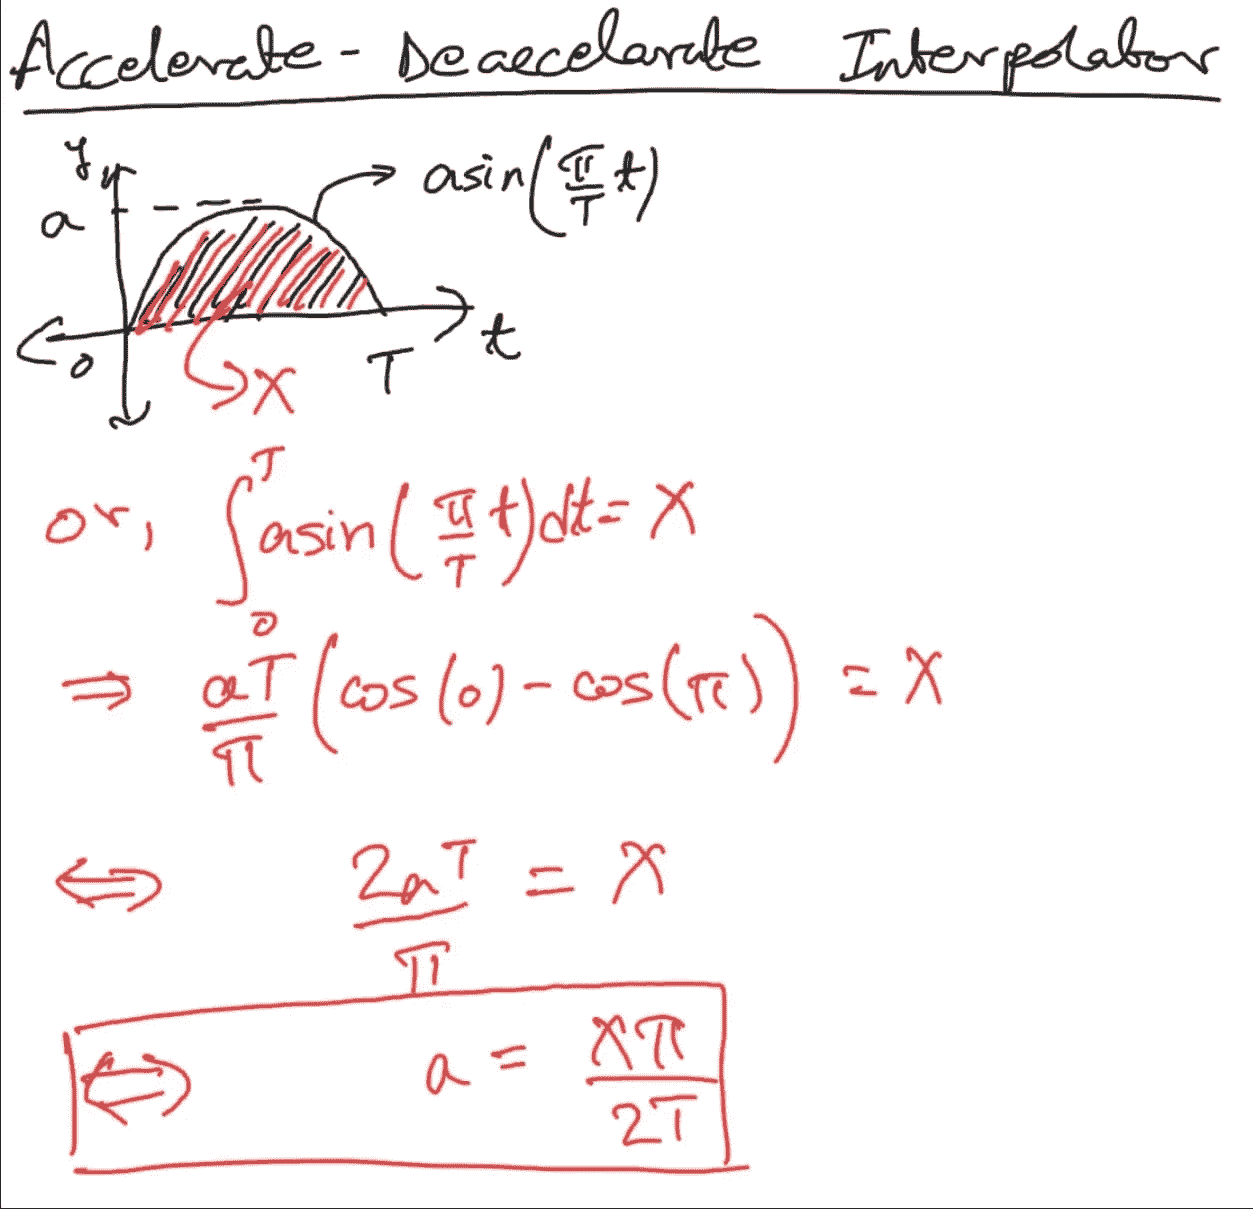 Accelerate - Deaecelarate Interpolator
y
a
asin(π/T t)
0
T
t
X
or, ∫₀ᵀ asin(π/T t)dt = X
⇒ aT/π (cos(0) - cos(π)) = X
⇔ 2aT/π = X
⇔ a = Xπ/2T